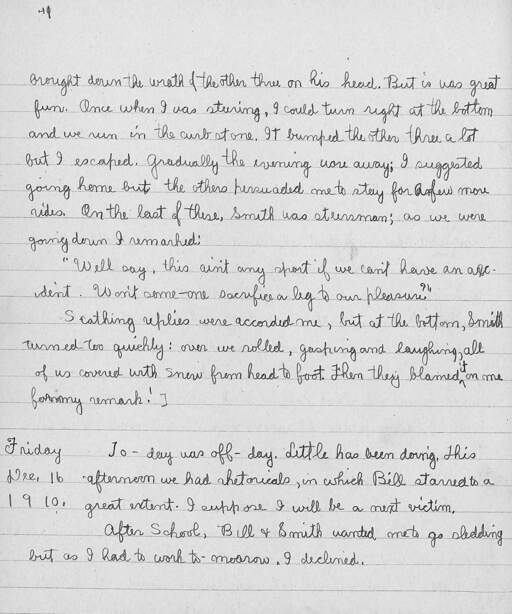 brought down the wrath of the other three on his head. But is was great
fun. Once when I was steering, I could turn right at the bottom
and we run in the curb stone. It bumped the other three a lot
but I escaped. Gradually the evening wore away; I suggested
going home but the others persuaded me to stay for a few more
rides. On the last of these, Smith was steersman; as we were
going down I remarked:
"Well say, this ain't any sport if we can't have an acc-
ident. Won't some-one sacrifice a leg to our pleasure?"
Scathing replies were accorded me, but at the bottom, Smith
turned too quickly: over we rolled, gasping and laughing, all
of us covered with snow from head to foot. Then they blamed it on me
for my remark!]
Friday To-day was off-day. Little has been doing. This
Dec. 16 afternoon we had rhetoricals, in which Bill starred to a
1910. great extent. I suppose I will be a next victim.
After School, Bill & Smith wanted me to go sledding
but as I had to work to-moorow, I declined.